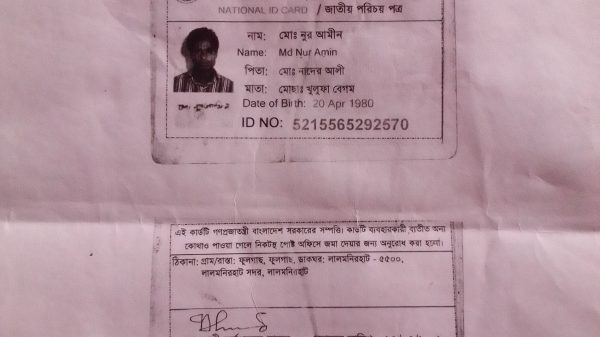 NATIONAL ID CARD / জাতীয় পরিচয় পত্র
নাম: মোঃ নুর আমীন
Name: Md Nur Amin
পিতা: মোঃ নাদের আলী
মাতা: মোছাঃ খুলুফা বেগম
Date of Birth: 20 Apr 1980
ID NO: 5215565292570
এই কার্ডটি গণপ্রজাতন্ত্রী বাংলাদেশ সরকারের সম্পত্তি। কার্ডটি ব্যবহারকারী ব্যতীত অন্য
কোথাও পাওয়া গেলে নিকটস্থ পোষ্ট অফিসে জমা দেয়ার জন্য অনুরোধ করা হলো।
ঠিকানা: গ্রাম/রাস্তা: ফুলগাছ, ফুলগাছ, ডাকঘর: লালমনিরহাট - ৫৫০০,
লালমনিরহাট সদর, লালমনিরহাট